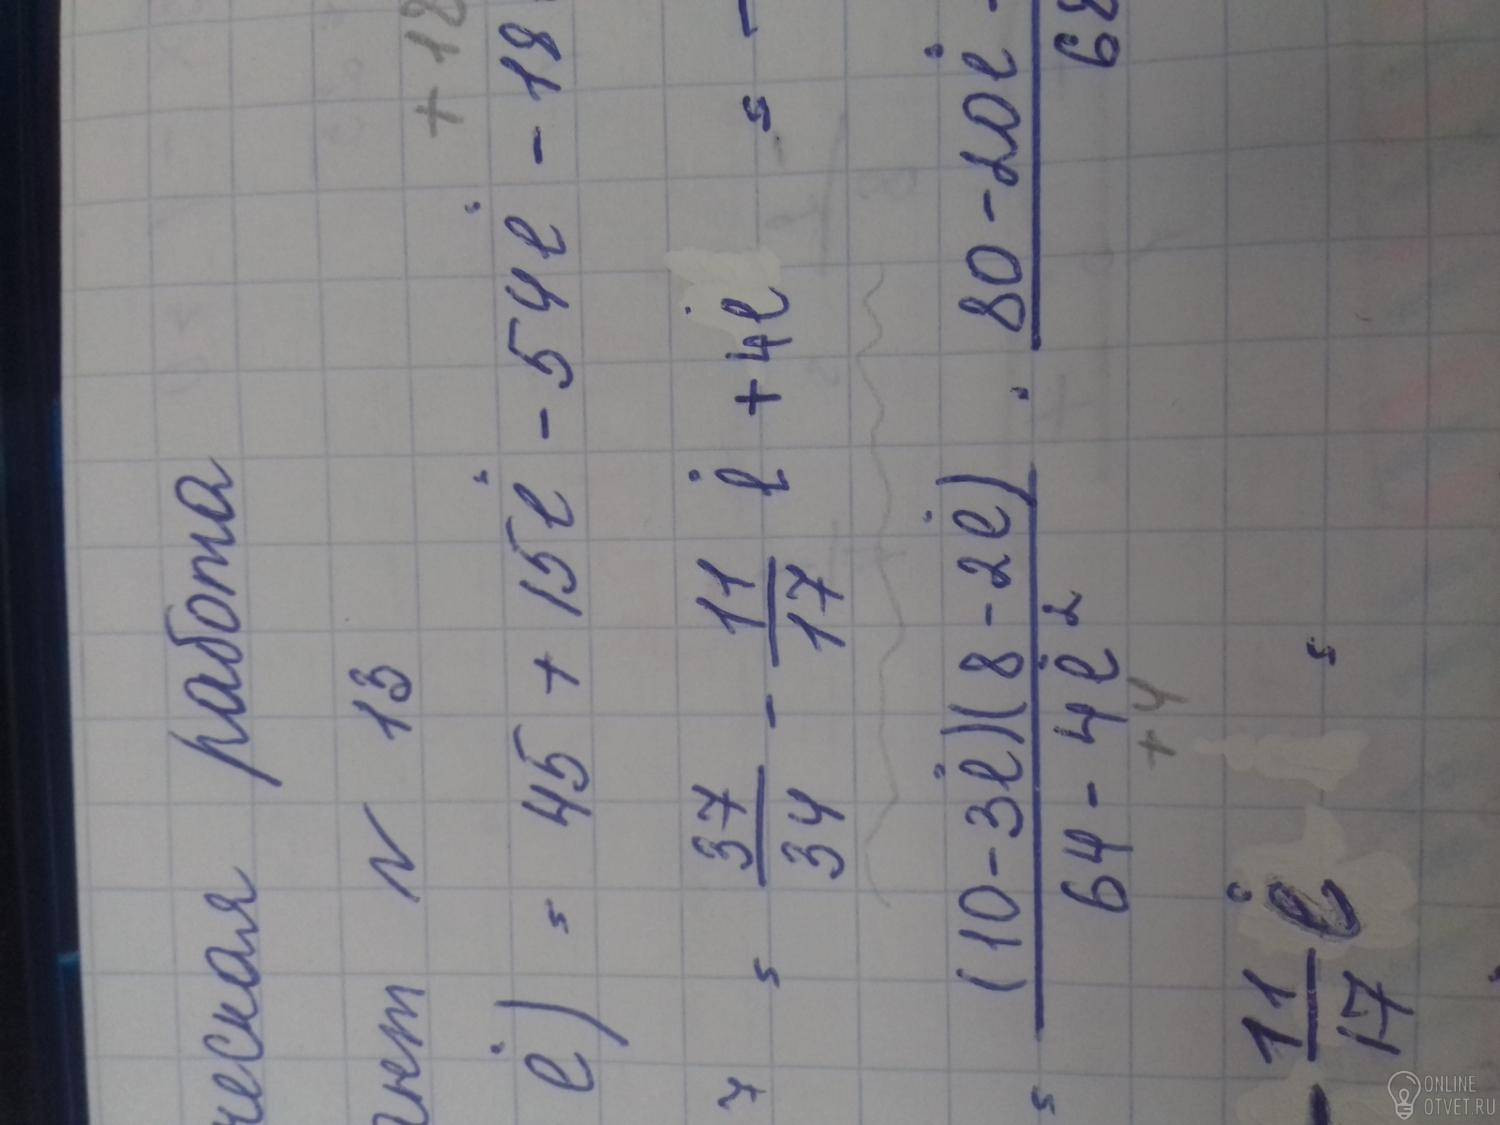 ческая работа
нт N 13
+ 18
i) = 45 + 15i - 54i - 18
= 37/34 - 11/17 i + 4i = -
= (10-3i)(8-2i)/64-4i² · 80-20i -/68
+4
- 11/17 i =
ONLINE
OTVET.RU